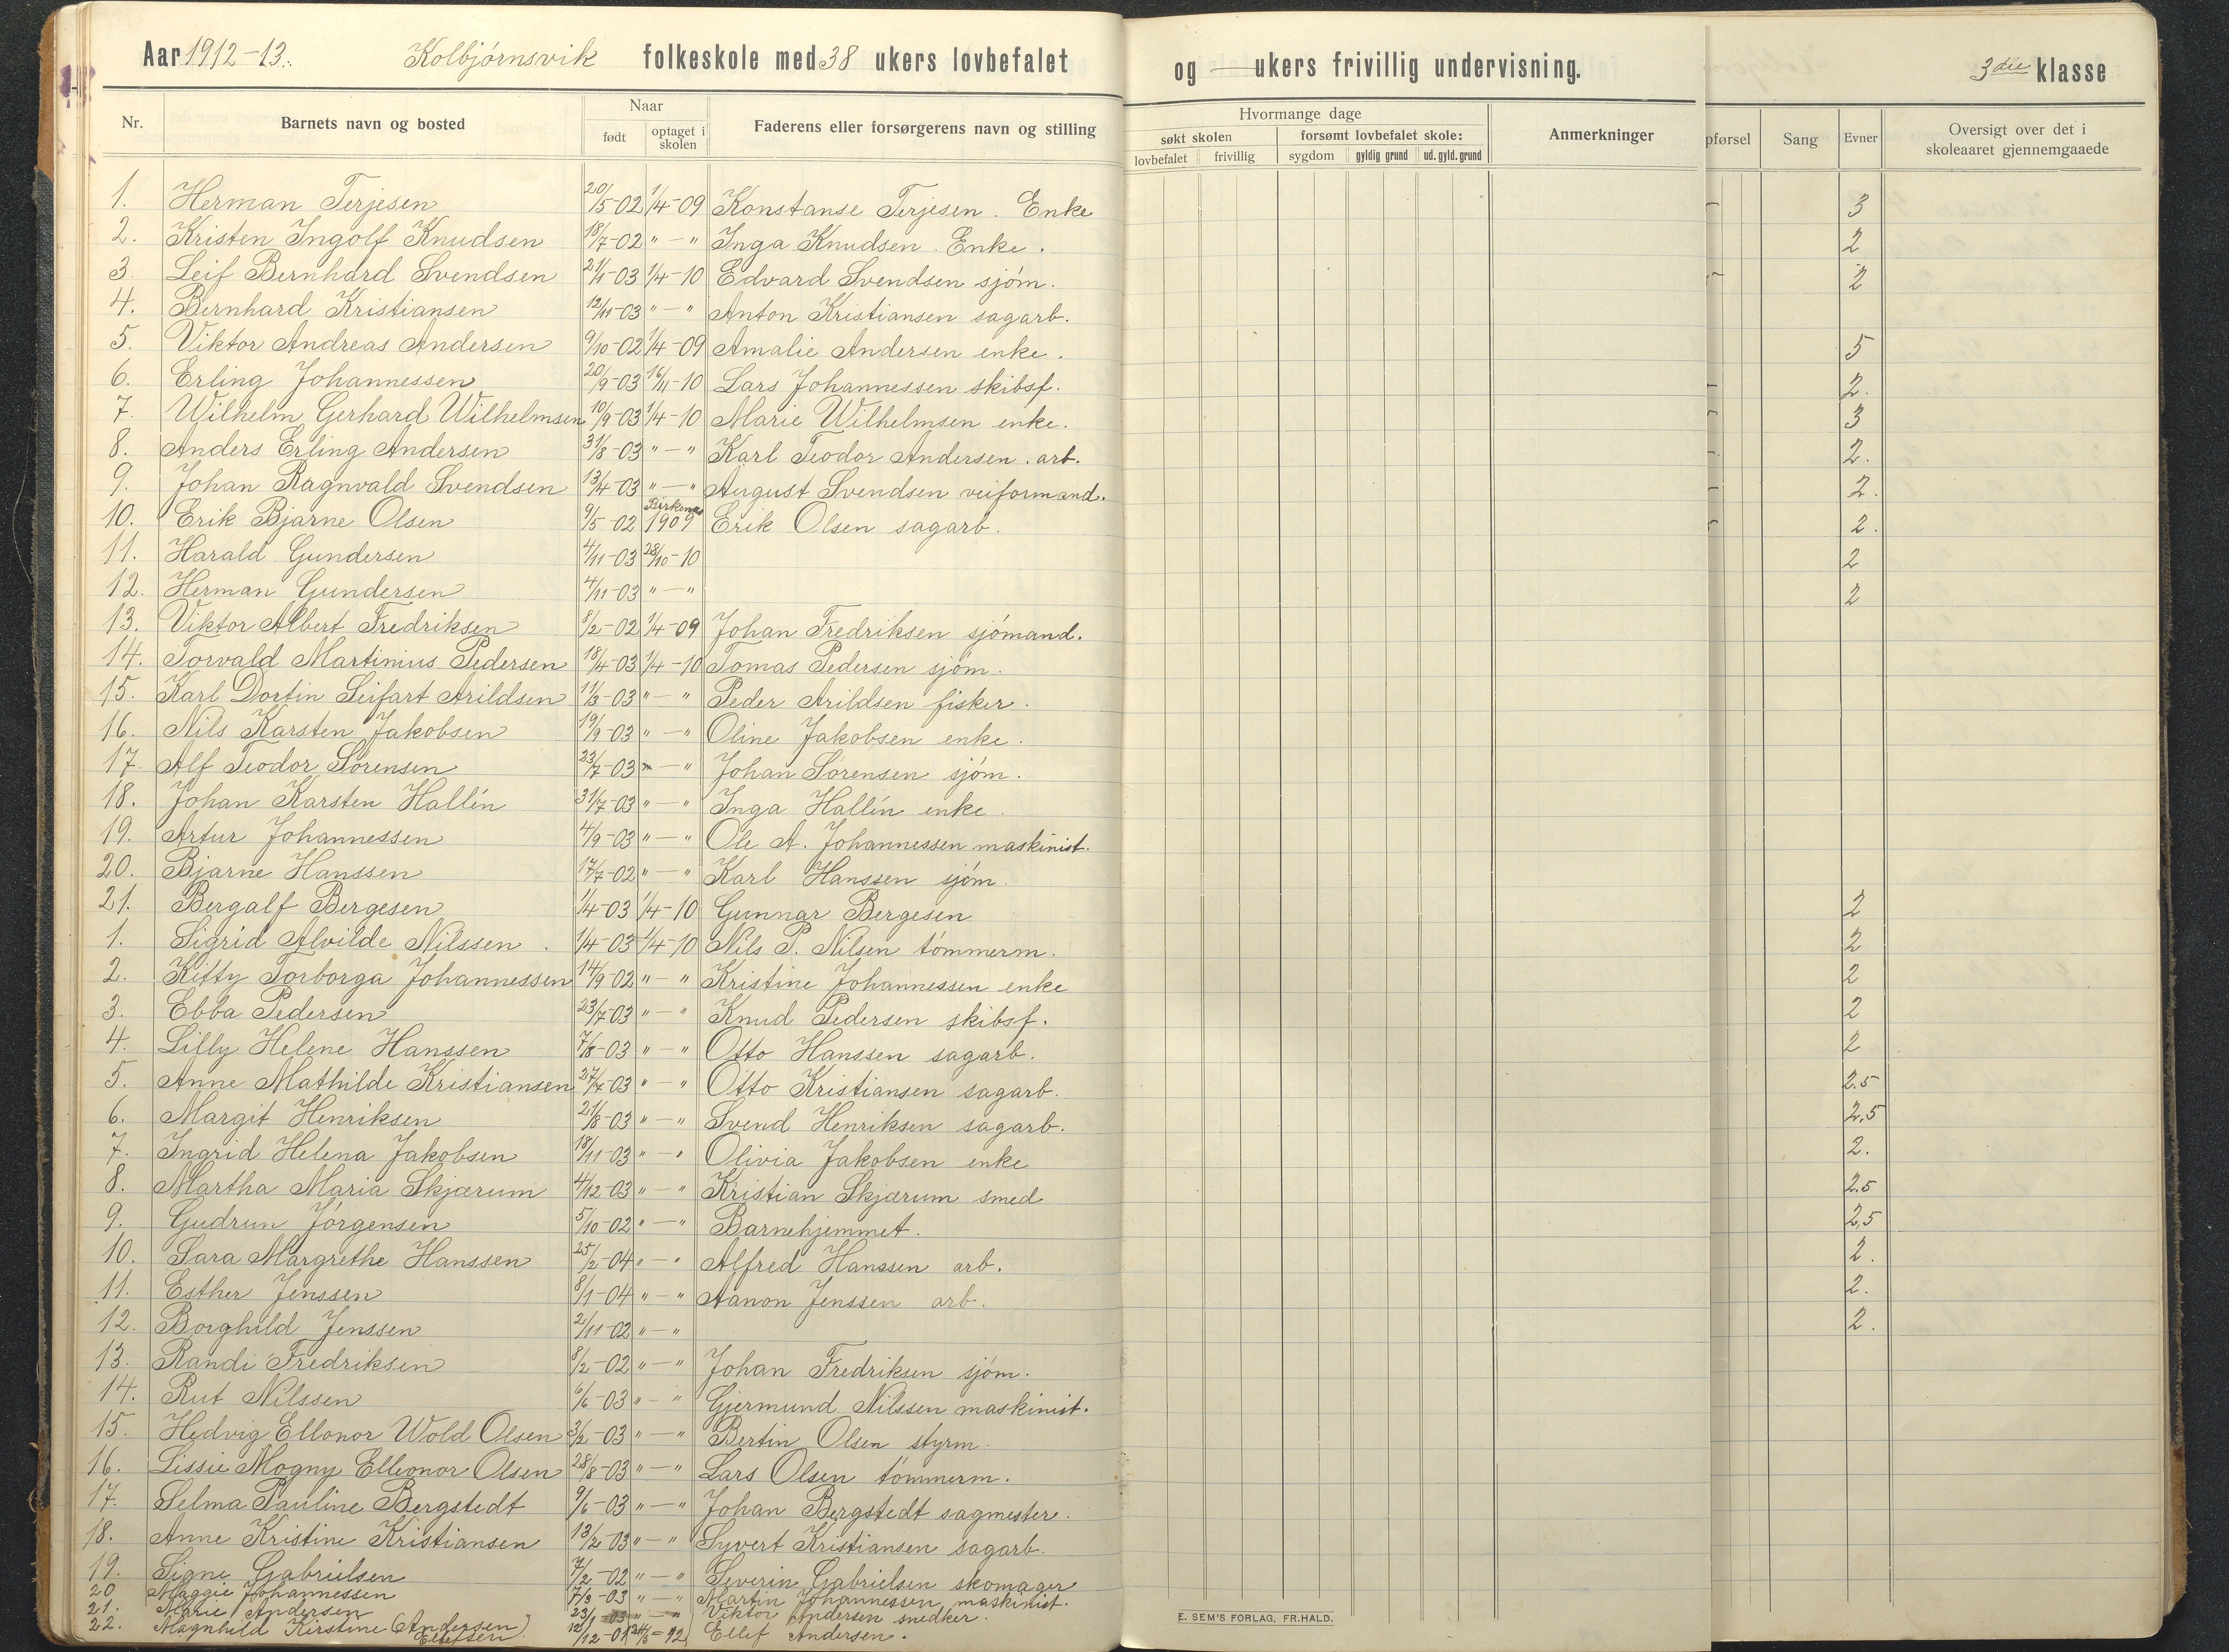 Aar 1912-13. Kolbjørnsvik folkeskole med 38 ukers lovbefalet og — ukers frivillig undervisning. 3die klasse
Nr. Barnets navn og bosted Naar født optaget i skolen Faderens eller forsørgerens navn og stilling Hvormange dage søkt skolen lovbefalet frivillig forsømt lovbefalet skole: sygdom gyldig grund ud. gyld. grund Anmerkninger pførsel Sang Evner Oversigt over det i skoleaaret gjennemgaaede
1. Herman Terjesen 20/5-02 1/4-09 Konstanse Terjesen. Enke 3
2. Kristen Ingolf Knudsen 18/7-02 " — " Inga Knudsen. Enke. 2
3. Leif Bernhard Svendsen 21/1-03 1/4-10 Edvard Svendsen sjøm. 2
4. Bernhard Kristiansen 12/11-03 " — " Anton Kristiansen sagarb.
5. Viktor Andreas Andersen 9/10-02 1/4-09 Amalie Andersen enke. 5
6. Erling Johannessen 20/9-03 16/11-10 Lars Johannessen skibsf. 2.
7. Wilhelm Gerhard Wilhelmsen 10/9-03 1/4-10 Marie Wilhelmsen enke. 3
8. Anders Erling Andersen 31/8-03 " — " Karl Teodor Andersen. arb. 2.
9. Johan Ragnvald Svendsen 13/4-03 " — " August Svendsen veiformand. 2.
10. Erik Bjarne Olsen 9/5-02 Birkenes 1909 Erik Olsen sagarb. 2.
11. Harald Gundersen 4/11-03 28/10-10 2
12. Herman Gundersen 4/11-03 " — " 2
13. Viktor Albert Fredriksen 8/2-02 1/4-09 Johan Fredriksen sjømand.
14. Torvald Martinius Pedersen 18/4-03 1/4-10 Tomas Pedersen sjøm.
15. Karl Dortin Seifart Arildsen 11/3-03 " — " Peder Arildsen fisker.
16. Nils Karsten Jakobsen 19/9-03 " — " Oline Jakobsen enke.
17. Alf Teodor Sørensen 23/7-03 " — " Johan Sørensen sjøm.
18. Johan Karsten Hallin 31/7-03 " — " Inga Hallin enke.
19. Artur Johannessen 4/9-03 " — " Ole A. Johannessen maskinist.
20. Bjarne Hanssen 17/7-02 " — " Karl Hanssen sjøm.
21. Bergalf Bergesen 1/4-03 1/4-10 Gunnar Bergesen 2
1. Sigrid Alvilde Nilssen. 1/4-03 1/4-10 Nils P. Nilsen tømmerm. 2
2. Kitty Torborga Johannessen 14/9-02 " — " Kristine Johannessen enke 2
3. Ebba Pedersen 23/7-03 " — " Knud Pedersen skibsf. 2
4. Lilly Helene Hanssen 7/8-03 " — " Otto Hanssen sagarb. 2
5. Anne Mathilde Kristiansen 27/7-03 " — " Otto Kristiansen sagarb. 2.5
6. Margit Henriksen 21/8-03 " — " Svend Henriksen sagarb. 2,5
7. Ingrid Helena Jakobsen 18/11-03 " — " Olivia Jakobsen enke 2.
8. Martha Maria Skjærum 4/12-03 " — " Kristian Skjærum smed 2.5
9. Gudrun Jørgensen 5/10-02 " — " Barnehjemmet. 2,5
10. Sara Margrethe Hanssen 25/2-04 " — " Alfred Hanssen arb. 2.
11. Esther Jenssen 8/1-04 " — " Aanon Jenssen arb. 2.
12. Borghild Jenssen 2/11-02 " — " 2.
13. Randi Fredriksen 8/2-02 " — " Johan Fredriksen sjøm.
14. Rut Nilssen 6/6-03 " — " Gjermund Nilssen maskinist.
15. Hedvig Ellonor Wold Olsen 3/2-03 " — " Bertin Olsen styrm.
16. Lissie Mogny Elleonor Olsen 28/8-03 " — " Lars Olsen tømmerm.
17. Selma Pauline Bergstedt 9/6-03 " — " Johan Bergstedt sagmester.
18. Anne Kristine Kristiansen 13/2-03 " — " Syvert Kristiansen sagarb.
19. Signe Gabrielsen 7/2-02 " — " Severin Gabrielsen skomager
20 Maggie Johannessen 7/3-03 " — " Martin Johannessen maskinist.
21. Marie Andersen 23/1-03 " — " Viktor Andersen snedker.
22. Magnhild Kirstine (Andersen) Ellefsen 12/12-01 Ellef Andersen.
E. SEM'S FORLAG, FR.HALD.